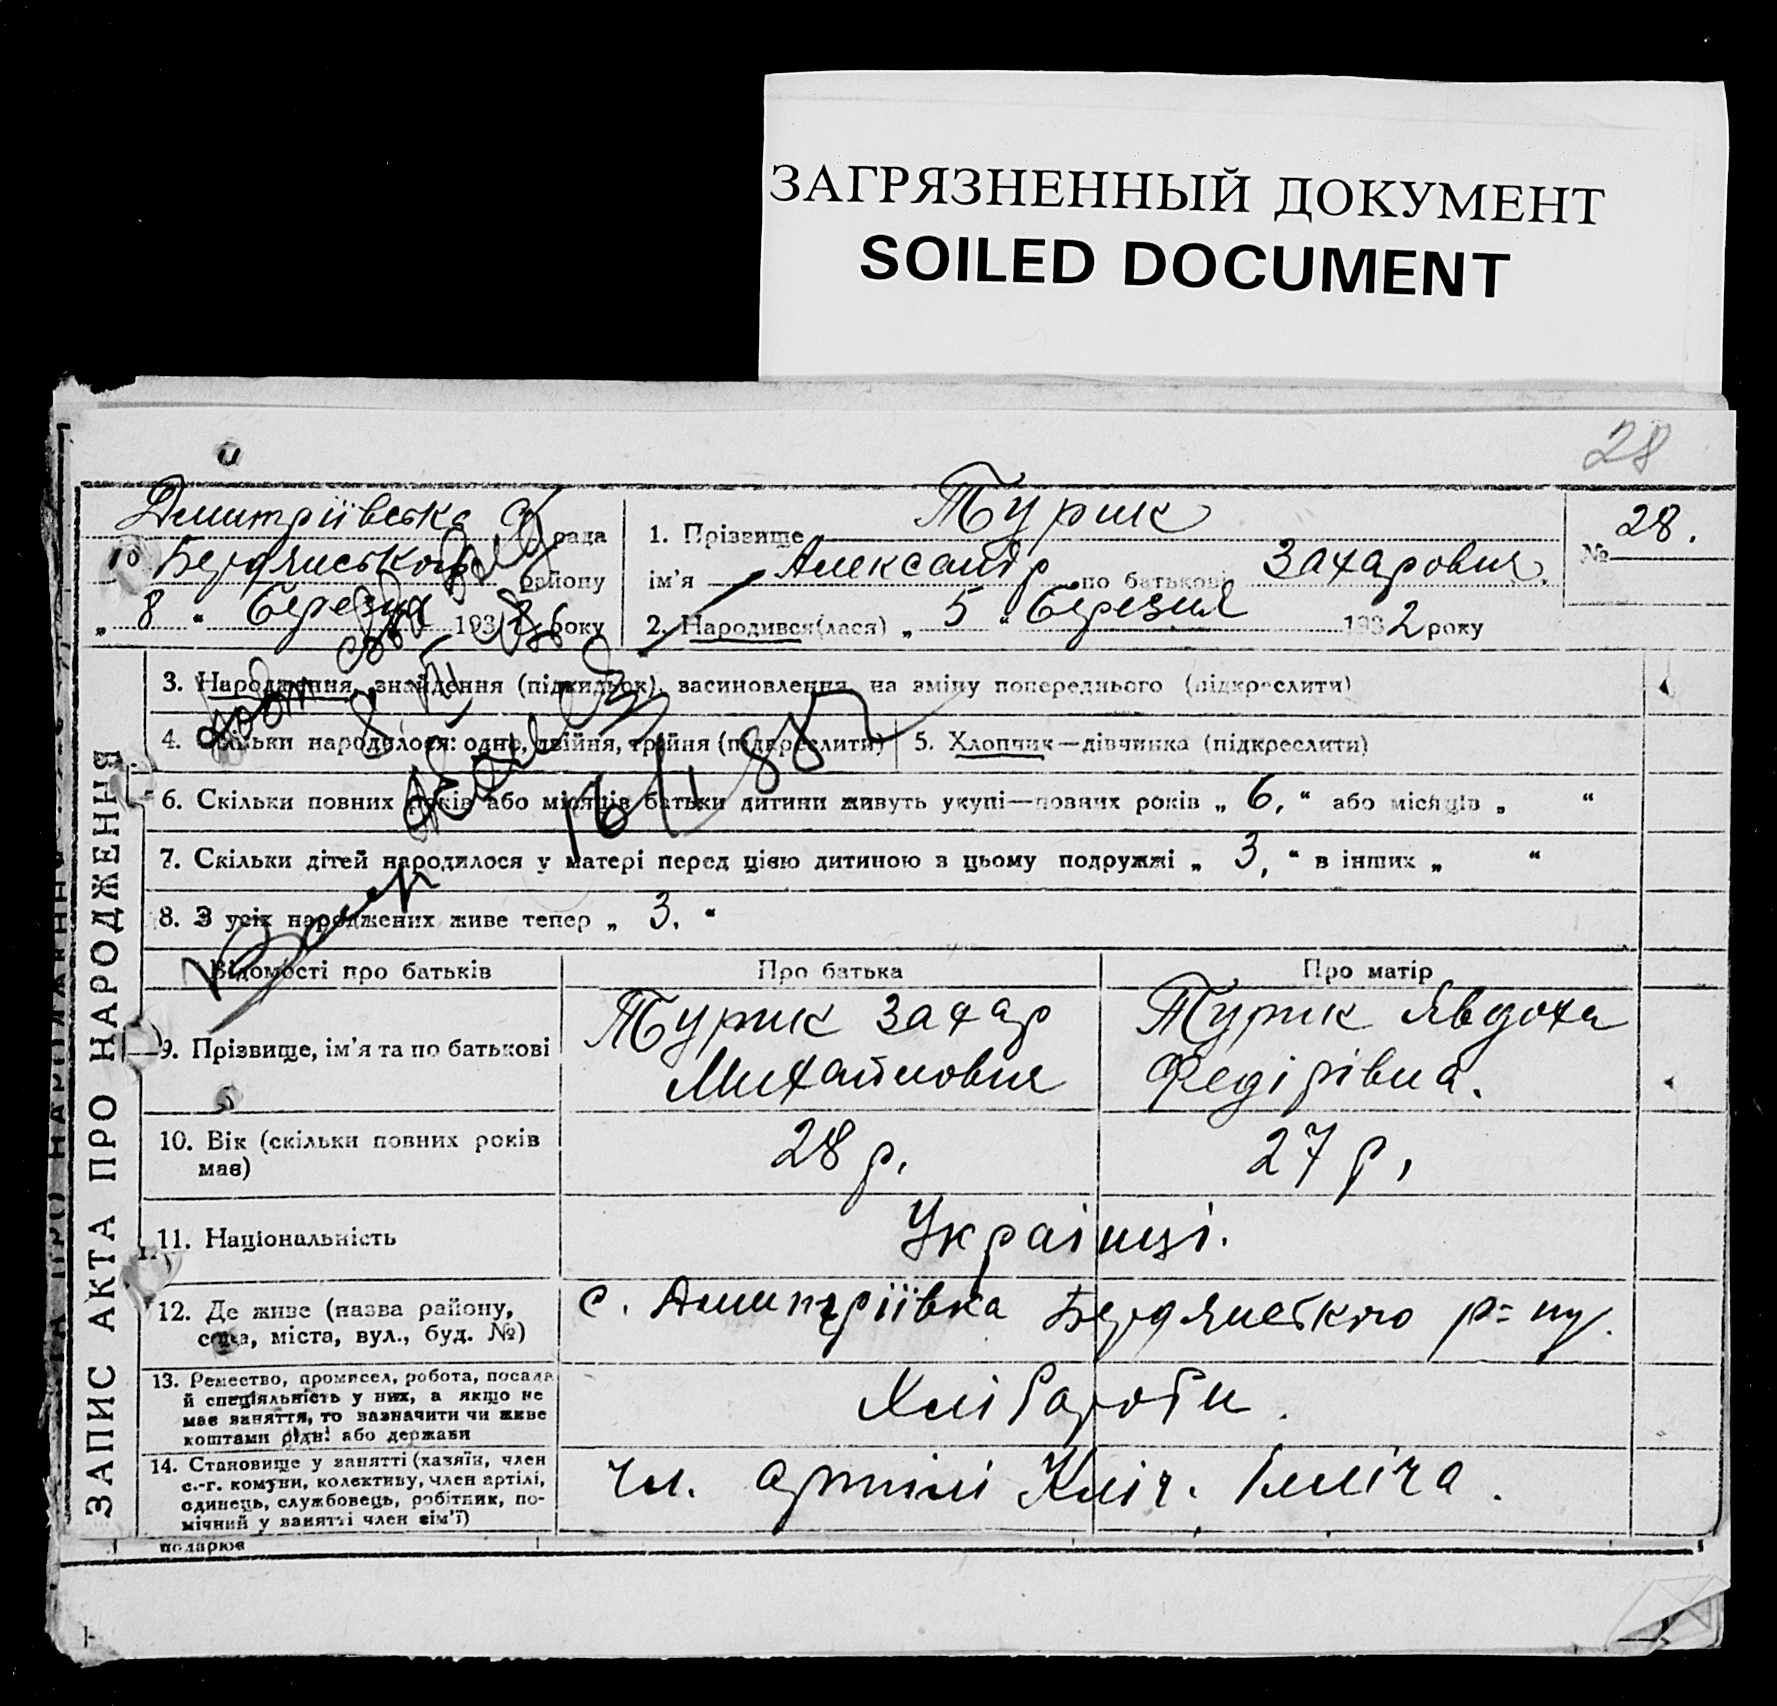 ЗАГРЯЗНЕННЫЙ ДОКУМЕНТ
SOILED DOCUMENT
28
Дмитріївська рада
Бердянського району
„ 8 “ Березня 1932 року
1. Прізвище Турик
ім’я Александр по батькові Захарович
2. Народився(лася) „ 5 “ Березня 1932 року
№ 28.
ЗАПИС АКТА ПРО НАРОДЖЕННЯ
3. Народження, знайдення (підкидьок), всиновлення, на зміну попереднього (підкреслити)
4. Скільки народилося: одно, двійня, трійня (підкреслити)
5. Хлопчик—дівчинка (підкреслити)
6. Скільки повних років або місяців батьки дитини живуть укупі—повних років „ 6, “ або місяців „ “
7. Скільки дітей народилося у матері перед цією дитиною в цьому подружжі „ 3, “ в інших „ “
8. З усіх народжених живе тепер „ 3. “
16/ 88
Відомості про батьків
Про батька
Про матір
9. Прізвище, ім’я та по батькові
Турик Захар
Михайлович
Турик Явдоха
Федірівна.
10. Вік (скільки повних років
має)
28 р.
27 р.
11. Національність
Українці.
12. Де живе (назва району,
села, міста, вул., буд. №)
с. Дмитріївка Бердянського р=ну.
13. Ремество, промисел, робота, посада
й спеціяльність у них, а якщо не
має заняття, то зазначити чи живе
коштами рідні або держави
Хлібороби.
14. Становище у занятті (хазяїн, член
с.-г. комуни, колективу, член артілі,
одинець, службовець, робітник, по-
мічний у занятті член сім’ї)
чл. артілі Кліч. Ілліча.